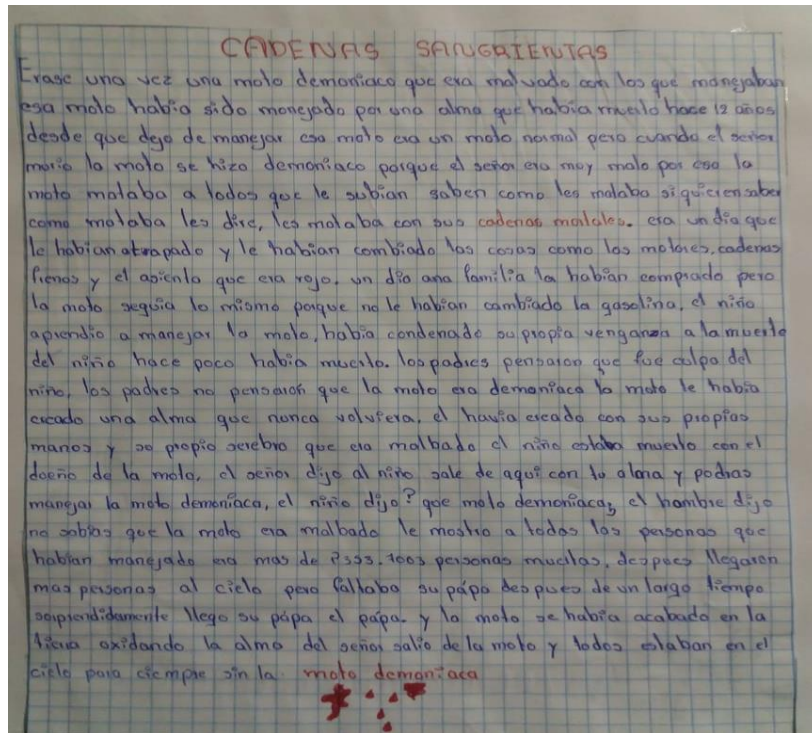 CADENAS SANGRIENTAS
Erase una vez una moto demoniaco que era malvado con los que manejaban
esa moto había sido monejado por una alma que había muerto hace 12 años
desde que dejo de manejar esa moto era un moto normal pero cuando el señor
murio la moto se hizo demoniaco porque el señor era muy malo por eso la
moto mataba a todos que le subian saben como les mataba si quieren saber
como mataba les dire, les mataba con sus cadenas matales. era un dia que
le habian atrapado y le habian combiado las cosas como los motores, cadenas
frenos y el asiento que era rojo, un dia una familia la habian comprado pero
la moto seguia lo mismo porque no le habian cambiado la gasolina, el niño
aprendio a manejar la moto, había condenado su propia venganza a la muerte
del niño hace poco habia muerto. los padres pensaron que fue culpa del
niño, los padres no pensaron que la moto era demoniaca la moto le habia
creado una alma que nunca volviera, el havia creado con sus propias
manos y so propio serebro que era malbado el niño estaba muerto con el
doeño de la moto, el señor dijo al niño sale de aqui con tu alma y podras
manejar la moto demoniaca, el niño dijo? que moto demoniaca, el hombre dijo
no sobias que la moto era malbado le mostro a todas las personas que
habian manejado era mas de personas muertas, despues llegaron
mas personas al cielo pero faltaba su pápa despues de un largo tiempo
sorprendidamente llego su pápa el pápa. y la moto se habia acabado en la
tierra oxidando la alma del señor salio de la moto y todos estaban en el
cielo para ciempre sin la moto demoniaca